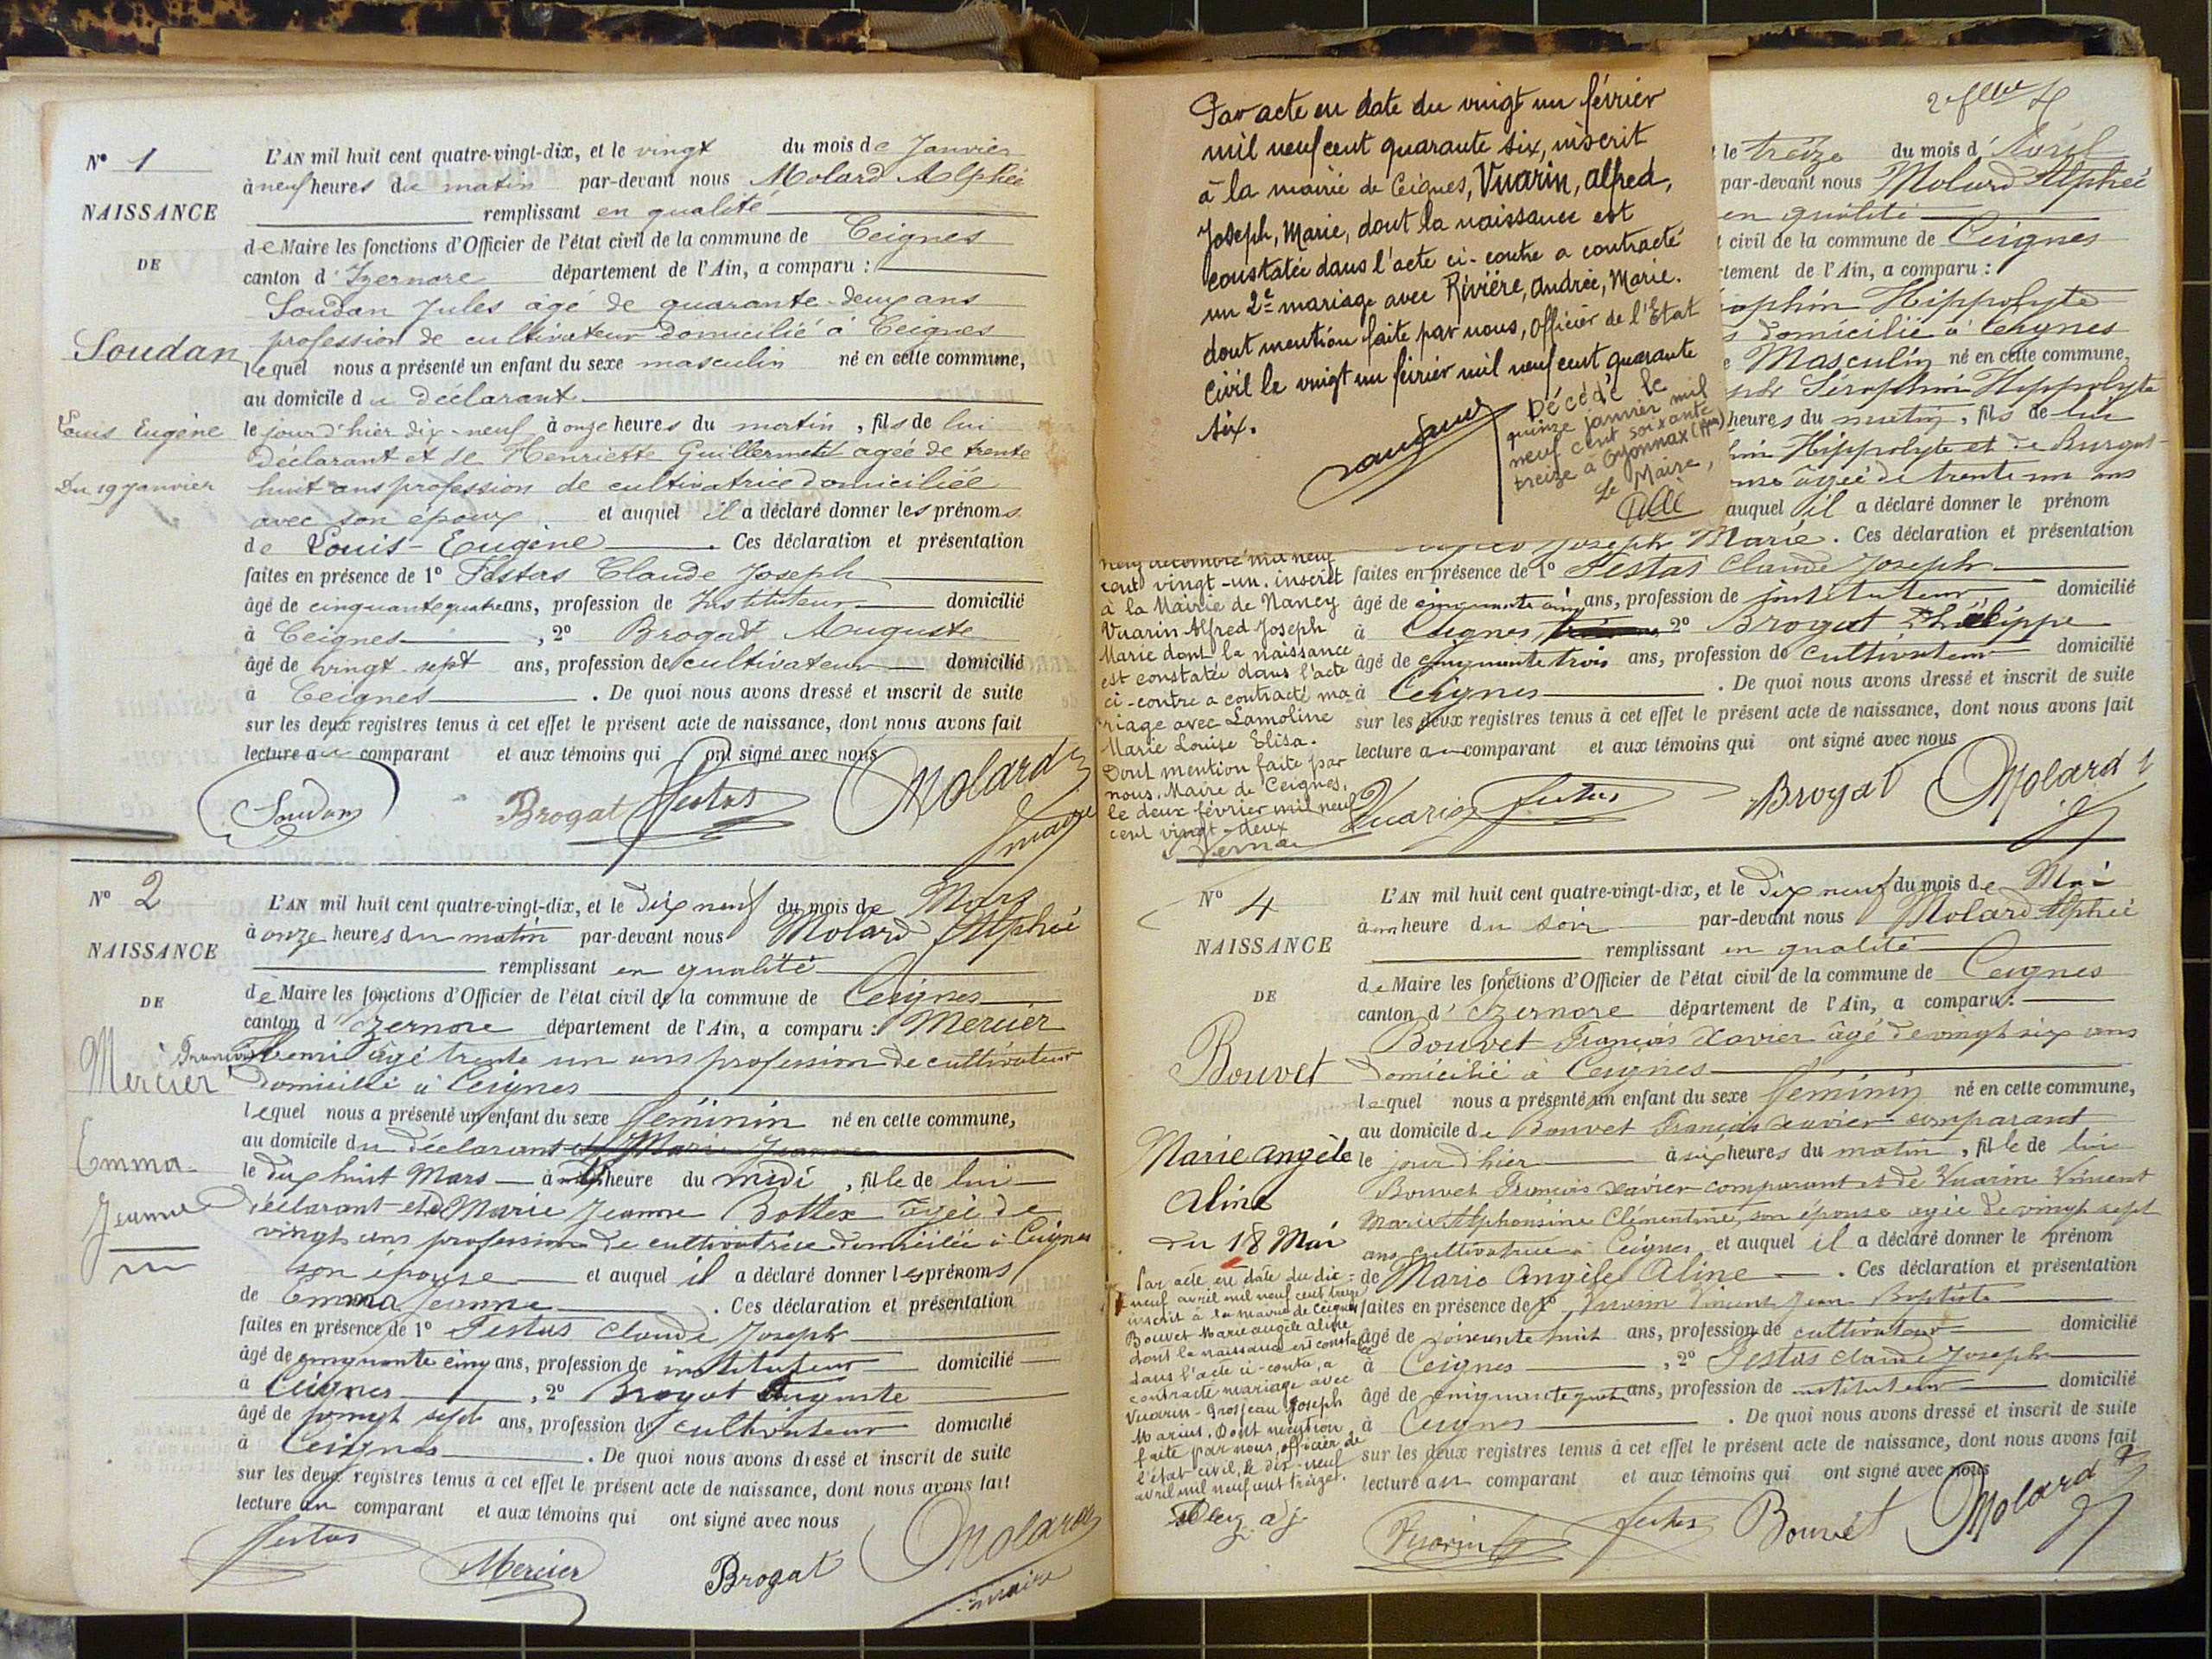 N° 1
NAISSANCE
DE
Soudan
Louis Eugène
Du 19 Janvier
L'AN mil huit cent quatre-vingt-dix, et le vingt du mois de Janvier
à neuf heures du matin par-devant nous Molard Alphée
remplissant en qualité
de Maire les fonctions d'Officier de l'état civil de la commune de Ceignes
canton d'Izernore département de l'Ain, a comparu :
Soudan Jules agé de quarante-deux ans
profession de cultivateur domicilié à Ceignes
lequel nous a présenté un enfant du sexe masculin né en cette commune,
au domicile du déclarant
le jour d'hier dix-neuf à onze heures du matin, fils de lui
déclarant et de Henriette Guillermet agée de trente
huit ans profession de cultivatrice domiciliée
avec son époux et auquel il a déclaré donner les prénoms
de Louis-Eugène. Ces déclaration et présentation
faites en présence de 1° Festas Claude Joseph
âgé de cinquante quatre ans, profession de Instituteur domicilié
à Ceignes, 2° Brogat Auguste
âgé de vingt-sept ans, profession de cultivateur domicilié
à Ceignes. De quoi nous avons dressé et inscrit de suite
sur les deux registres tenus à cet effet le présent acte de naissance, dont nous avons fait
lecture au comparant et aux témoins qui ont signé avec nous
Soudan Brogat Festas Molard
maire
N° 2
NAISSANCE
DE
Mercier
Emma
Jeanne
L'AN mil huit cent quatre-vingt-dix, et le Dix neuf du mois de Mars
à onze heures du matin par-devant nous Molard Alphée
remplissant en qualité
de Maire les fonctions d'Officier de l'état civil de la commune de Ceignes
canton d'Izernore département de l'Ain, a comparu : Mercier
François Remi âgé trente un ans profession de cultivateur
domicilié à Ceignes
lequel nous a présenté un enfant du sexe féminin né en cette commune,
au domicile du déclarant et Marie Jeanne
le dix huit Mars à heure du midi, fille de lui
déclarant et de Marie Jeanne Bottex agée de
vingt ans profession de cultivatrice domiciliée à Ceignes
son épouse et auquel il a déclaré donner les prénoms
de Emma Jeanne. Ces déclaration et présentation
faites en présence de 1° Festas Claude Joseph
âgé de cinquante cinq ans, profession de instituteur domicilié
à Ceignes, 2° Brogat Auguste
âgé de vingt sept ans, profession de cultivateur domicilié
à Ceignes. De quoi nous avons dressé et inscrit de suite
sur les deux registres tenus à cet effet le présent acte de naissance, dont nous avons fait
lecture au comparant et aux témoins qui ont signé avec nous
Festas Mercier Brogat Molard
maire
Par acte en date du vingt un février
mil neuf cent quarante six, inscrit
à la mairie de Ceignes, Vuarin, alfred,
Joseph, Marie, dont la naissance est
constatée dans l'acte ci-contre a contracté
un 2e mariage avec Rivière, andrée, Marie.
dont mention faite par nous, Officier de l'Etat
Civil le vingt un février mil neuf cent quarante
six.
Décédé le
quinze janvier mil
neuf cent soixante
treize à Oyonnax (Ain)
Le Maire,
le treize du mois d'Avril
par-devant nous Molard Alphée
en qualité
civil de la commune de Ceignes
tement de l'Ain, a comparu :
aphin Hippolyte
domicilié à Ceignes
Masculin né en cette commune,
Séraphin Hippolyte
heures du matin, fils de lui
Hippolyte et de
âgée de trente un ans
auquel il a déclaré donner le prénom
Joseph Marie. Ces déclaration et présentation
faites en présence de 1° Festas Claude Joseph
âgé de cinquante cinq ans, profession de instituteur domicilié
à Ceignes 2° Brogat Philippe
âgé de cinquante trois ans, profession de cultivateur domicilié
à Ceignes. De quoi nous avons dressé et inscrit de suite
sur les deux registres tenus à cet effet le présent acte de naissance, dont nous avons fait
lecture au comparant et aux témoins qui ont signé avec nous
Vuarin Festas Brogat Molard
neuf décembre mil neuf
cent vingt-un. inscrit
à la Mairie de Nancy
Vuarin Alfred Joseph
Marie dont la naissance
est constatée dans l'acte
ci-contre a contracté ma-
riage avec Lamoline
Marie Louise Elisa.
Dont mention faite par
nous, Maire de Ceignes,
le deux février mil neuf
cent vingt-deux
N° 4
NAISSANCE
DE
Bouvet
Marie Angèle
Aline
du 18 Mai
L'AN mil huit cent quatre-vingt-dix, et le Dix neuf du mois de Mai
à un heure du soir par-devant nous Molard Alphée
remplissant en qualité
de Maire les fonctions d'Officier de l'état civil de la commune de Ceignes
canton d'Izernore département de l'Ain, a comparu :
Bouvet François Xavier âgé de vingt six ans
domicilié à Ceignes
lequel nous a présenté un enfant du sexe féminin né en cette commune,
au domicile de Bouvet François Xavier comparant
le jour d'hier à six heures du matin, fille de lui
Bouvet François Xavier comparant et de Vuarin Vincent
Marie Alphonsine Clémentine, son épouse agée de vingt sept
ans cultivatrice à Ceignes et auquel il a déclaré donner le prénom
de Marie Angèle Aline. Ces déclaration et présentation
faites en présence de 1° Vuarin Vincent Jean Baptiste
âgé de soixante huit ans, profession de cultivateur domicilié
à Ceignes, 2° Festas Claude Joseph
âgé de cinquante quatre ans, profession de instituteur domicilié
à Ceignes. De quoi nous avons dressé et inscrit de suite
sur les deux registres tenus à cet effet le présent acte de naissance, dont nous avons fait
lecture au comparant et aux témoins qui ont signé avec nous
Vuarin Festas Bouvet Molard
Par acte en date du dix-
neuf avril mil neuf cent treize
inscrit à la mairie de Ceignes
Bouvet Marie angèle aline
dont la naissance est constatée
dans l'acte ci-contre, a
contracté mariage avec
Vuarin-Grosjean Joseph
Marius. Dont mention
faite par nous, officier de
l'état-civil, le dix-neuf
avril mil neuf cent treize.